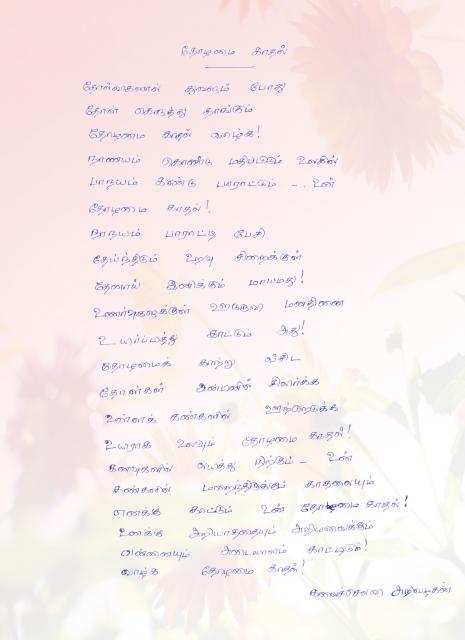 தோழமை காதல்
தோல்விகளில் துவளும் போது
தோள் கொடுத்து தாங்கும்
தோழமை காதல் வாழ்க!
நாணயம் கொண்டு மதிப்பிடும் உலகில்
பாநயம் கண்டு பாராட்டும் – உன்
தோழமை காதல்!
நாநயம் பாராட்டி பேசி
தேய்ந்திடும் உறவு சிறைக்குள்
தேனாய் இனிக்கும் மாயமது!
உணர்வுகளுக்குள் ஊடுருவி மனதினை
உயிர்ப்பித்து காட்டும் அது!
தோழமைக் காற்று வீசிட
தோள்கள் சிலிர்க்க
உள்ளக் கண்களில் ஊற்றெடுக்க
உயிராக உலவும் தோழமை காதல்!
கனவுகளில் உயிர்த்து நிற்கும் – உன்
கண்களில் மறைந்திருக்கும் காதலையும்
எனக்கு காட்டும் உன் தோழமை காதல்!
உனக்கு அறியாததையும் அறியவைக்கும்
என்னையும் அடையாளம் காட்டிடும்!
வாழ்க தோழமை காதல்!
கலைச்செல்வி அறிவழகன்